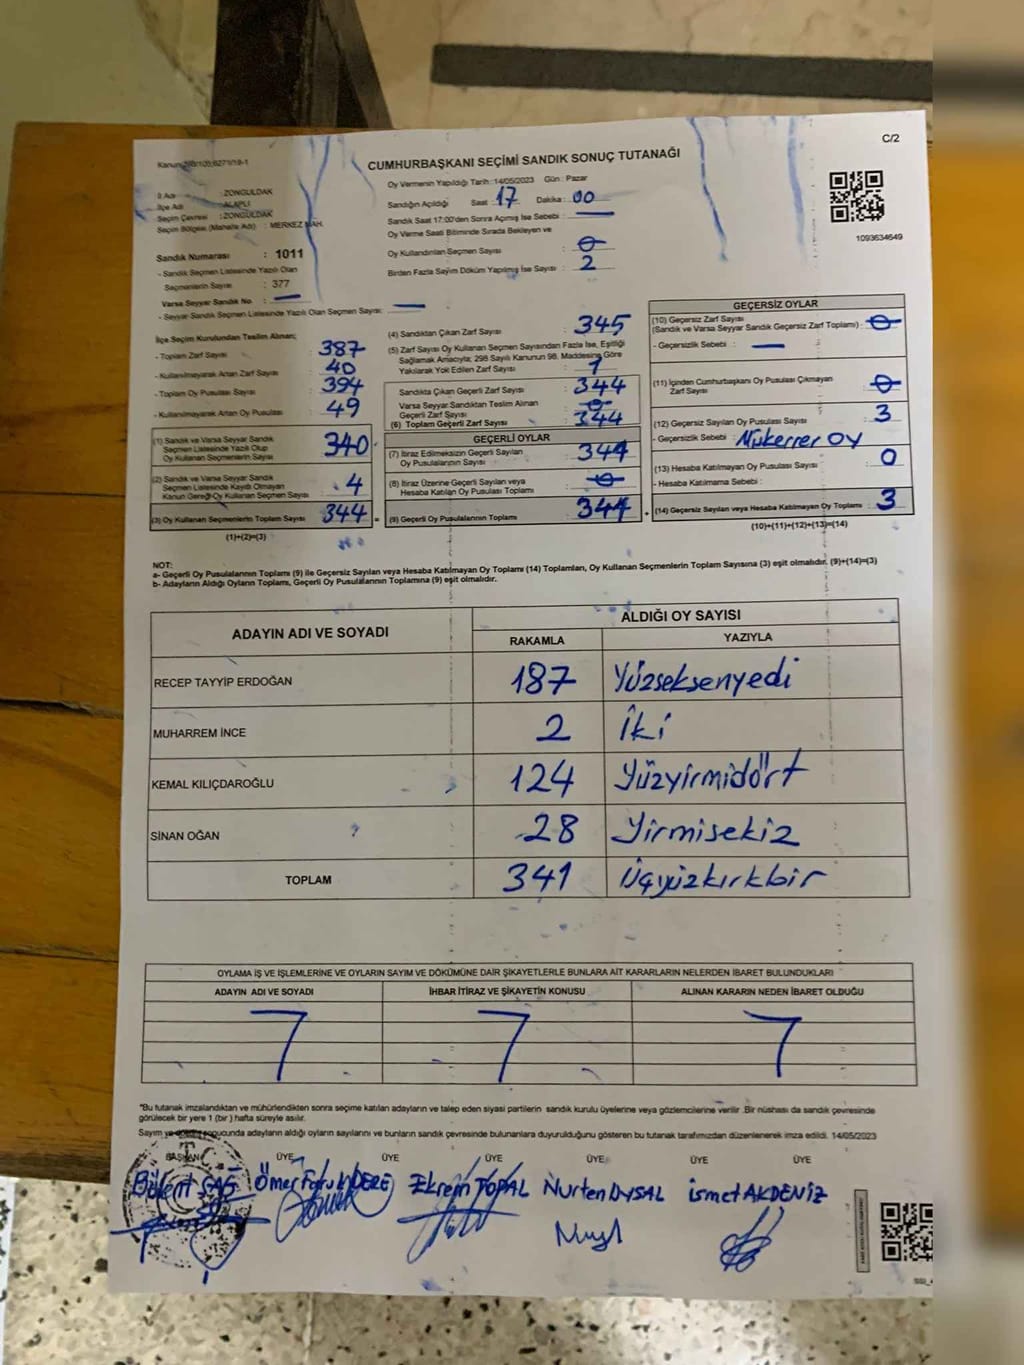 C/2
Kanun: 298/103;6271/19-1
CUMHURBAŞKANI SEÇİMİ SANDIK SONUÇ TUTANAĞI
İl Adı : ZONGULDAK
İlçe Adı : ALAPLI
Seçim Çevresi : ZONGULDAK
Seçim Bölgesi (Mahalle Adı) : MERKEZ MAH.
Sandık Numarası : 1011
- Sandık Seçmen Listesinde Yazılı Olan
Seçmenlerin Sayısı : 377
Varsa Seyyar Sandık No : —
- Seyyar Sandık Seçmen Listesinde Yazılı Olan Seçmen Sayısı: —
Oy Vermenin Yapıldığı Tarih: 14/05/2023 Gün : Pazar
Sandığın Açıldığı Saat : 17 Dakika : 00
Sandık Saat 17:00'den Sonra Açımış İse Sebebi : —
Oy Verme Saati Bitiminde Sırada Bekleyen ve
Oy Kullandırılan Seçmen Sayısı : 0
Birden Fazla Sayım Döküm Yapılmış İse Sayısı : 2
1093634649
İlçe Seçim Kurulundan Teslim Alınan;
- Toplam Zarf Sayısı : 387
- Kullanılmayarak Artan Zarf Sayısı : 40
- Toplam Oy Pusulası Sayısı : 394
- Kullanılmayarak Artan Oy Pusulası : 49
(1) Sandık ve Varsa Seyyar Sandık
Seçmen Listesinde Yazılı Olup
Oy Kullanan Seçmenlerin Sayısı : 340
(2) Sandık ve Varsa Seyyar Sandık
Seçmen Listesinde Kayıtlı Olmayan
Kanun Gereği Oy Kullanan Seçmen Sayısı : 4
(3) Oy Kullanan Seçmenlerin Toplam Sayısı : 344 =
(1)+(2)=(3)
(4) Sandıktan Çıkan Zarf Sayısı : 345
(5) Zarf Sayısı Oy Kullanan Seçmen Sayısından Fazla İse, Eşitliği
Sağlamak Amacıyla; 298 Sayılı Kanunun 98. Maddesine Göre
Yakılarak Yok Edilen Zarf Sayısı : 1
Sandıkta Çıkan Geçerli Zarf Sayısı : 344
Varsa Seyyar Sandıktan Teslim Alınan
Geçerli Zarf Sayısı : 0
(6) Toplam Geçerli Zarf Sayısı : 344
GEÇERLİ OYLAR
(7) İtiraz Edilmeksizin Geçerli Sayılan
Oy Pusulalarının Sayısı : 344
(8) İtiraz Üzerine Geçerli Sayılan veya
Hesaba Katılan Oy Pusulası Toplamı : 0
(9) Geçerli Oy Pusulalarının Toplamı : 344 +
GEÇERSİZ OYLAR
(10) Geçersiz Zarf Sayısı
(Sandık ve Varsa Seyyar Sandık Geçersiz Zarf Toplamı) : 0
- Geçersizlik Sebebi : —
(11) İçinden Cumhurbaşkanı Oy Pusulası Çıkmayan
Zarf Sayısı : 0
(12) Geçersiz Sayılan Oy Pusulası Sayısı : 3
- Geçersizlik Sebebi : Mükerrer OY
(13) Hesaba Katılmayan Oy Pusulası Sayısı : 0
- Hesaba Katılmama Sebebi :
(14) Geçersiz Sayılan veya Hesaba Katılmayan Oy Toplamı : 3
(10)+(11)+(12)+(13)=(14)
NOT:
a- Geçerli Oy Pusulalarının Toplamı (9) ile Geçersiz Sayılan veya Hesaba Katılmayan Oy Toplamı (14) Toplamları, Oy Kullanan Seçmenlerin Toplam Sayısına (3) eşit olmalıdır. (9)+(14)=(3)
b- Adayların Aldığı Oyların Toplamı, Geçerli Oy Pusulalarının Toplamına (9) eşit olmalıdır.
ADAYIN ADI VE SOYADI
ALDIĞI OY SAYISI
RAKAMLA YAZIYLA
RECEP TAYYİP ERDOĞAN 187 Yüzseksenyedi
MUHARREM İNCE 2 İki
KEMAL KILIÇDAROĞLU 124 Yüzyirmidört
SİNAN OĞAN 28 Yirmisekiz
TOPLAM 341 Üçyüzkırkbir
OYLAMA İŞ VE İŞLEMLERİNE VE OYLARIN SAYIM VE DÖKÜMÜNE DAİR ŞİKAYETLERLE BUNLARA AİT KARARLARIN NELERDEN İBARET BULUNDUKLARI
ADAYIN ADI VE SOYADI İHBAR İTİRAZ VE ŞİKAYETİN KONUSU ALINAN KARARIN NEDEN İBARET OLDUĞU
*Bu tutanak imzalandıktan ve mühürlendikten sonra seçime katılan adayların ve talep eden siyasi partilerin sandık kurulu üyelerine veya gözlemcilerine verilir .Bir nüshası da sandık çevresinde
görülecek bir yere 1 (bir ) hafta süreyle asılır.
Sayım ve döküm sonucunda adayların aldığı oyların sayılarını ve bunların sandık çevresinde bulunanlara duyurulduğunu gösteren bu tutanak tarafımızdan düzenlenerek imza edildi. 14/05/2023
BAŞKAN ÜYE ÜYE ÜYE ÜYE ÜYE ÜYE
Bülent SAĞ Ömer Faruk DERE Ekrem TOPAL Nurten UYSAL İsmet AKDENİZ